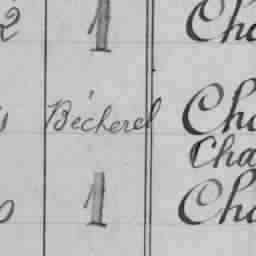 2 1 Cha
Bécherel Cha
Cha
1 Cha